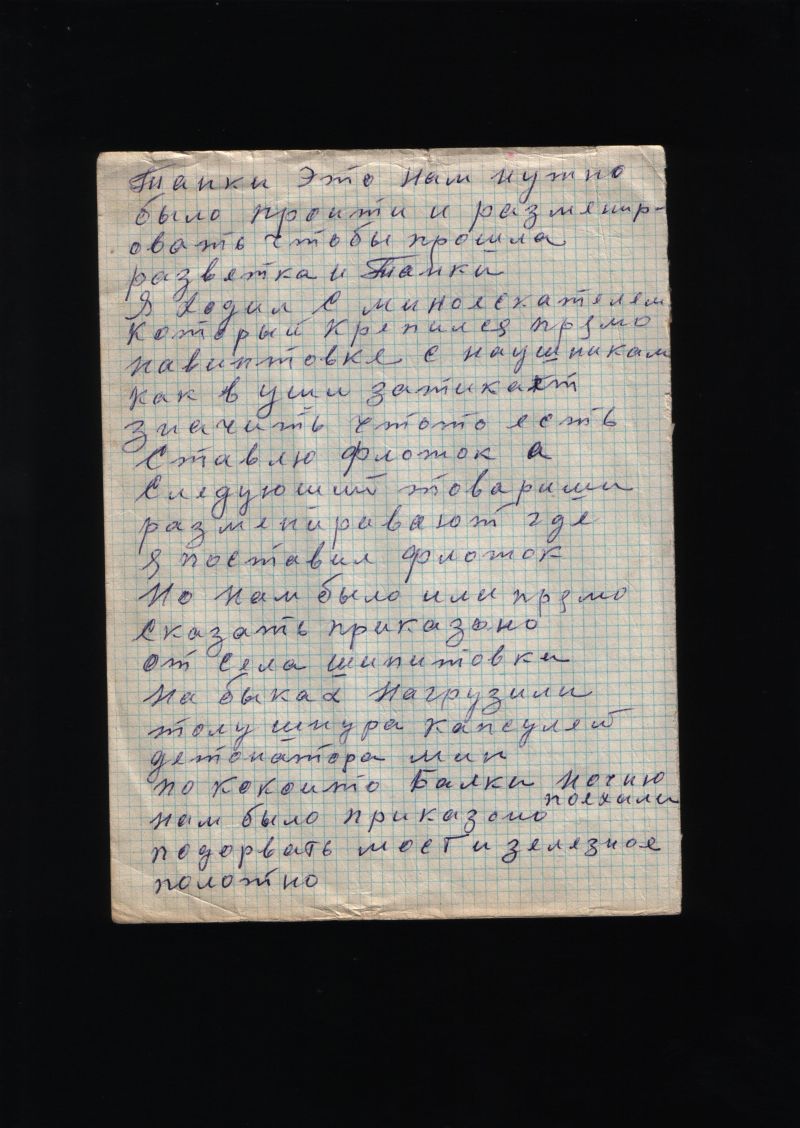 Танки Это нам нужно
было проити и разменир-
овать чтобы прошла
разветка и Танки
Я ходил С миноескателем
Который Крепился прямо
навинтовке с наушникам
как в уши затикает
значить чтото есть
Ставлю фложок а
Следуюший товариши
разменировают где
я поставил фложок
Но нам было или прямо
Сказать приказоно
от Села шипитовки
На быках Нагрузили
толу шнура капсулей
детонатора мин
по кокоито Балки Ночию
поехили
нам было приказоно
подорвать мост и зелезное
полотно